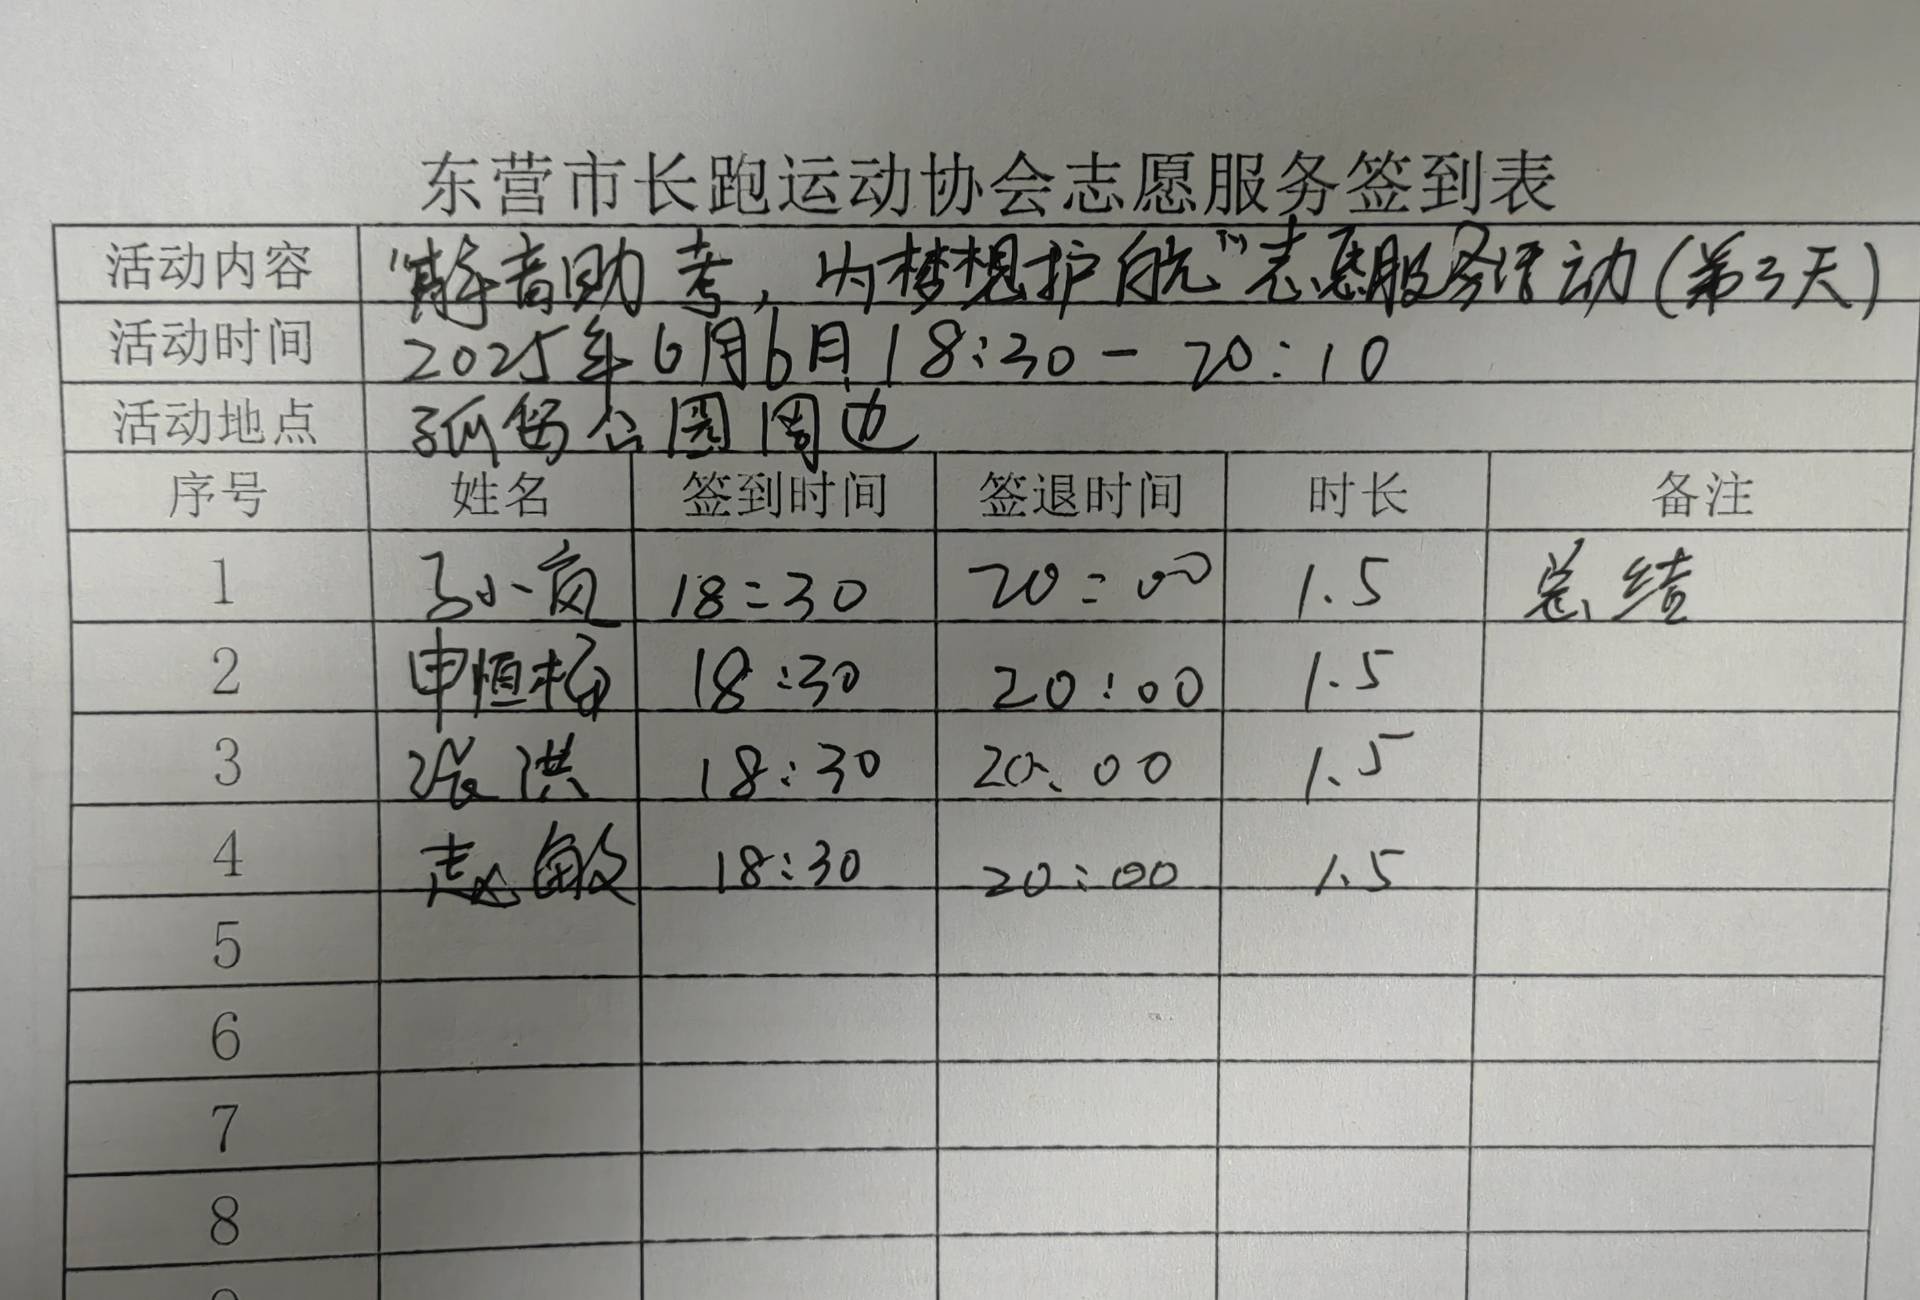 东营市长跑运动协会志愿服务签到表
活动内容 "静音助考，为梦想护航"志愿服务活动(第3天)
活动时间 2025年6月6日 18:30-20:10
活动地点 孤岛公园周边
序号 姓名 签到时间 签退时间 时长 备注
1 18:30 20:00 1.5 总结
2 申恒 18:30 20:00 1.5
3 张洪 18:30 20:00 1.5
4 赵敏 18:30 20:00 1.5
5
6
7
8